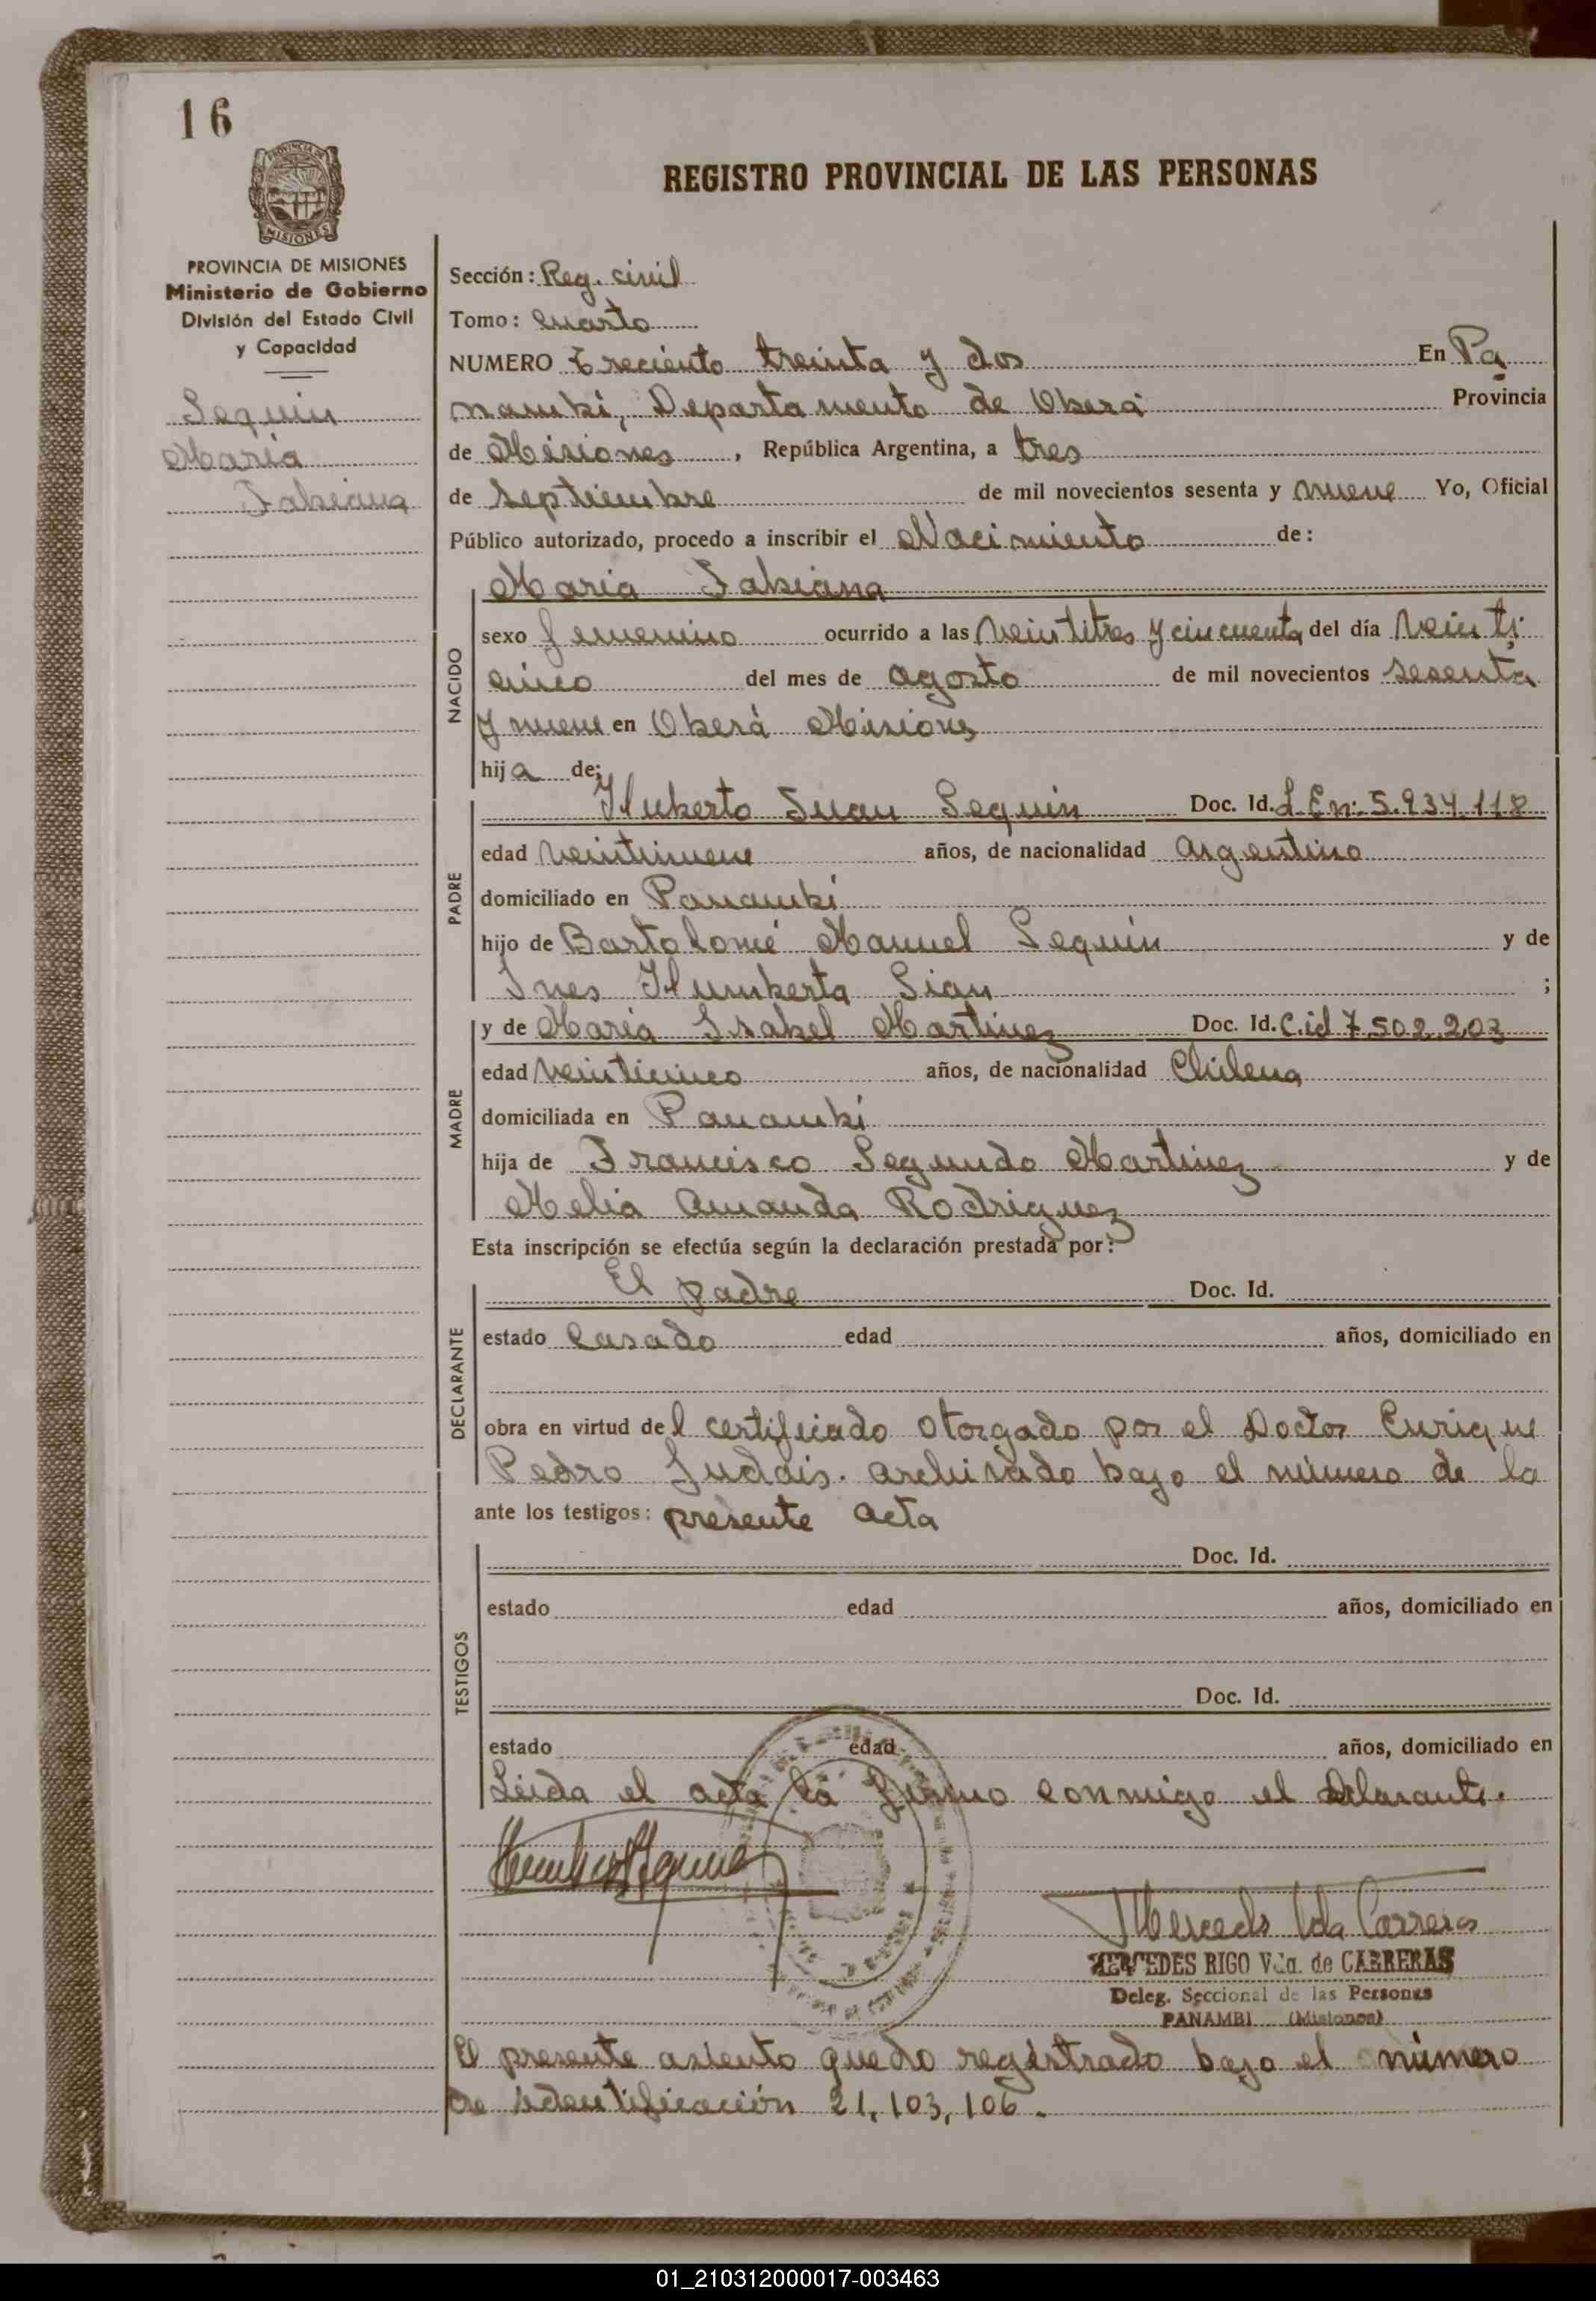 16
PROVINCIA DE
MISIONES
REGISTRO PROVINCIAL DE LAS PERSONAS
PROVINCIA DE MISIONES
Ministerio de Gobierno
División del Estado Civil
y Capacidad
Sequin
Maria
Fabiana
Sección: Reg. civil
Tomo: Cuarto
NUMERO Treciento treinta y dos En Pa
nambi, Departamento de Oberá Provincia
de Misiones, República Argentina, a tres
de Septiembre de mil novecientos sesenta y nueve Yo, Oficial
Público autorizado, procedo a inscribir el Nacimiento de:
NACIDO
Maria Fabiana
sexo femenino ocurrido a las veintitres y cincuenta del día veinti
cinco del mes de agosto de mil novecientos sesenta
y nueve en Oberá Misiones
hija de:
PADRE
Huberto Juan Sequin Doc. Id. L.En: 5.934.118
edad veintinueve años, de nacionalidad Argentino
domiciliado en Panambi
hijo de Bartolomé Manuel Sequin y de
Ines Humberta Sian ;
MADRE
y de Maria Isabel Martinez Doc. Id. C.id 7.502.203
edad veinticinco años, de nacionalidad Chilena
domiciliada en Panambi
hija de Francisco Segundo Martinez y de
Melia Amanda Rodriguez
Esta inscripción se efectúa según la declaración prestada por:
DECLARANTE
El padre Doc. Id.
estado Casado edad años, domiciliado en
obra en virtud del certificado otorgado por el Doctor Enrique
Pedro archivado bajo el número de la
ante los testigos: presente acta
TESTIGOS
Doc. Id.
estado edad años, domiciliado en
Doc. Id.
estado edad años, domiciliado en
Leida el acta la firmo conmigo el declarante.
Mercedes Vda Carreras
MERCEDES RIGO Vda. de CARRERAS
Deleg. Seccional de las Personas
PANAMBI (Misiones)
El presente asiento quedo registrado bajo el número
de identificación 21,103,106.
01_210312000017-003463